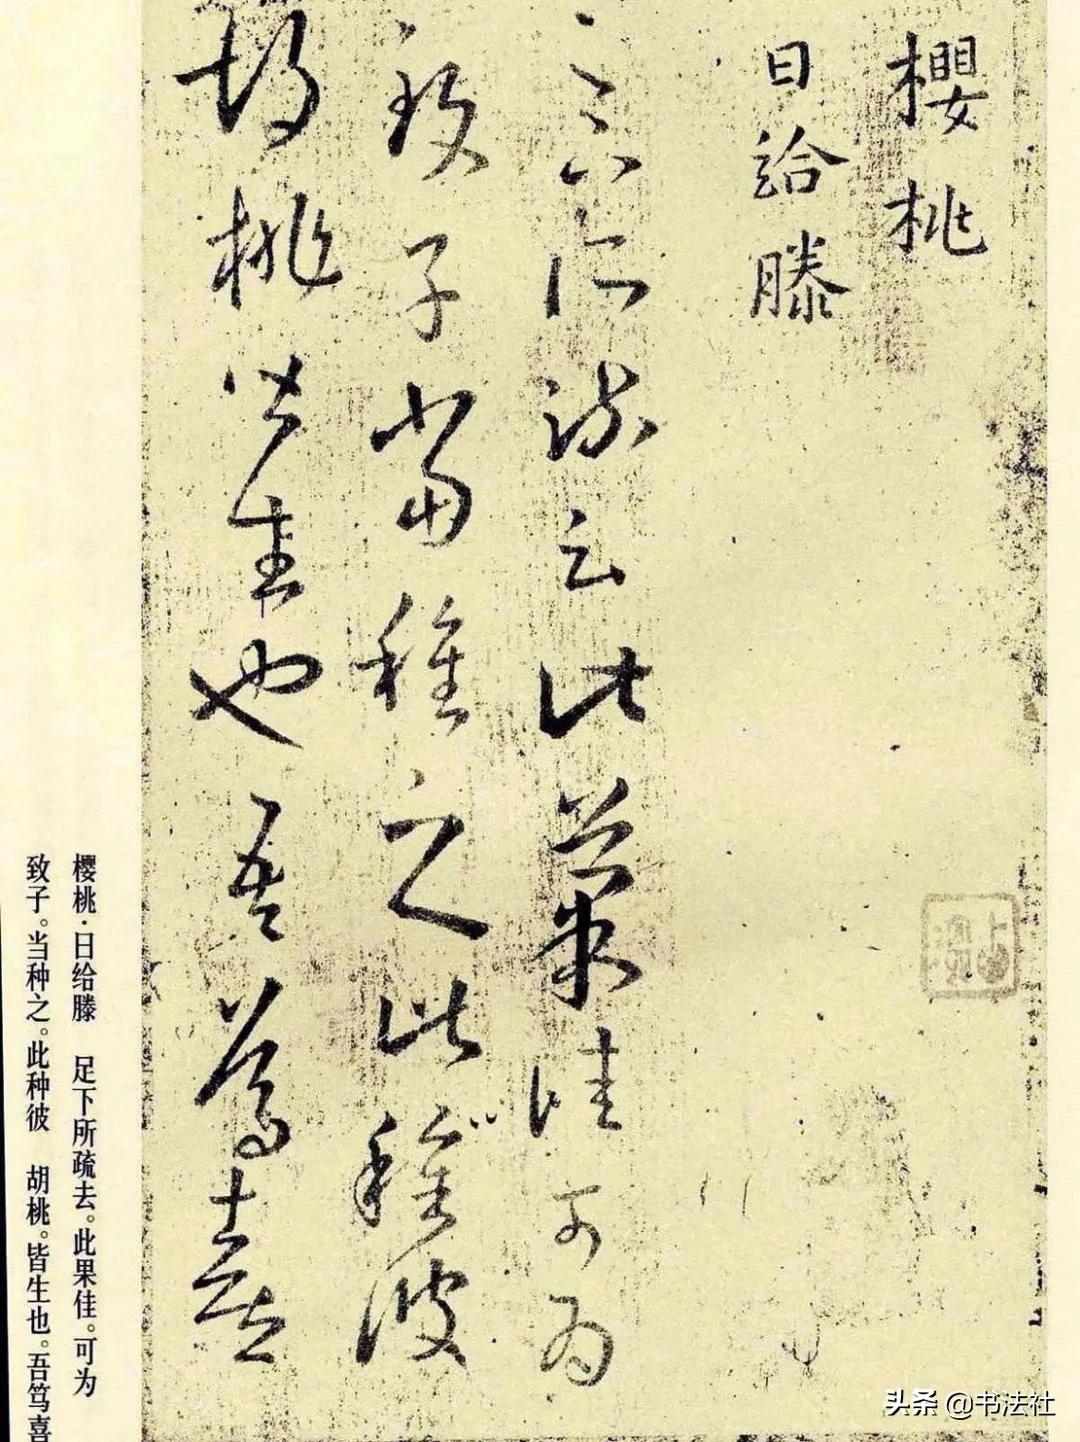 櫻桃
日給滕
足下所疏云此菓佳可為
致子當種之此種彼
胡桃皆生也吾篤喜
樱桃·日给滕 足下所疏去。此果佳。可为
致子。当种之。此种彼 胡桃。皆生也。吾笃喜
头条 @书法社